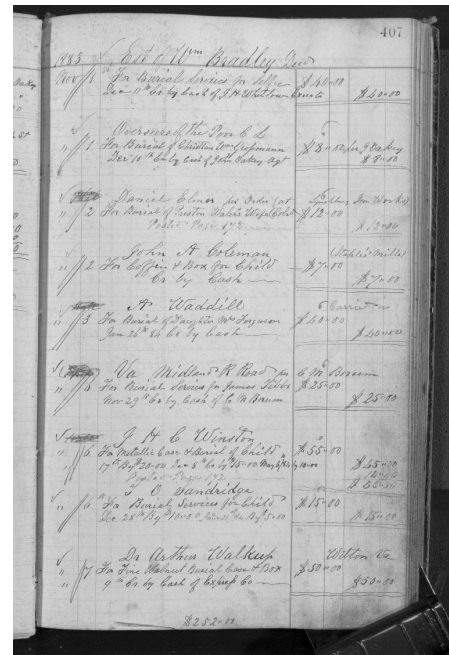 407
1883 Est of Wm Bradley Decd
Nov 1st For Burial Services for Self $40-00
Dec 11th Cr by Cash of J H $40-00
Overseers of the Poor C L
" 1 For Burial of Christina $8-00 for J Oakey
Dec 14th Cr by Cash of John Oakey Agt $8-00
Daniel Elmer per Order (at Iron Works)
" 2 For Burial of Wife $12-00
Posted Page 172 $12-00
John A Coleman (Staples Mills)
" 2 For Coffin & Box for Child $7-00
Cr by Cash $7-00
A Waddill Carried in
" 3 For Burial of Daughter Mrs Ferguson $40-00
Jan 26th 84 Cr by Cash $40-00
Va Midland R Road per C M Borum
" 4 For Burial Services for James $25-00
Nov 29th Cr by Cash of C M Borum $25-00
J H C Winston
" 6 For Metallic Case & Burial of Child $55-00
17th By $20-00 Dec 5th Cr by $15-00 by 10-00 $45-00
Posted Page
O Sandridge
" 6th For Burial Services for Child $15-00
Dec 28th By $10-00 Cr By 5-00 $15-00
Dr Arthur Walkup Wilton Va
" 7 For Fine Walnut Burial Case & Box $50-00
9th Cr by Cash of Express Co $50-00
$252-00